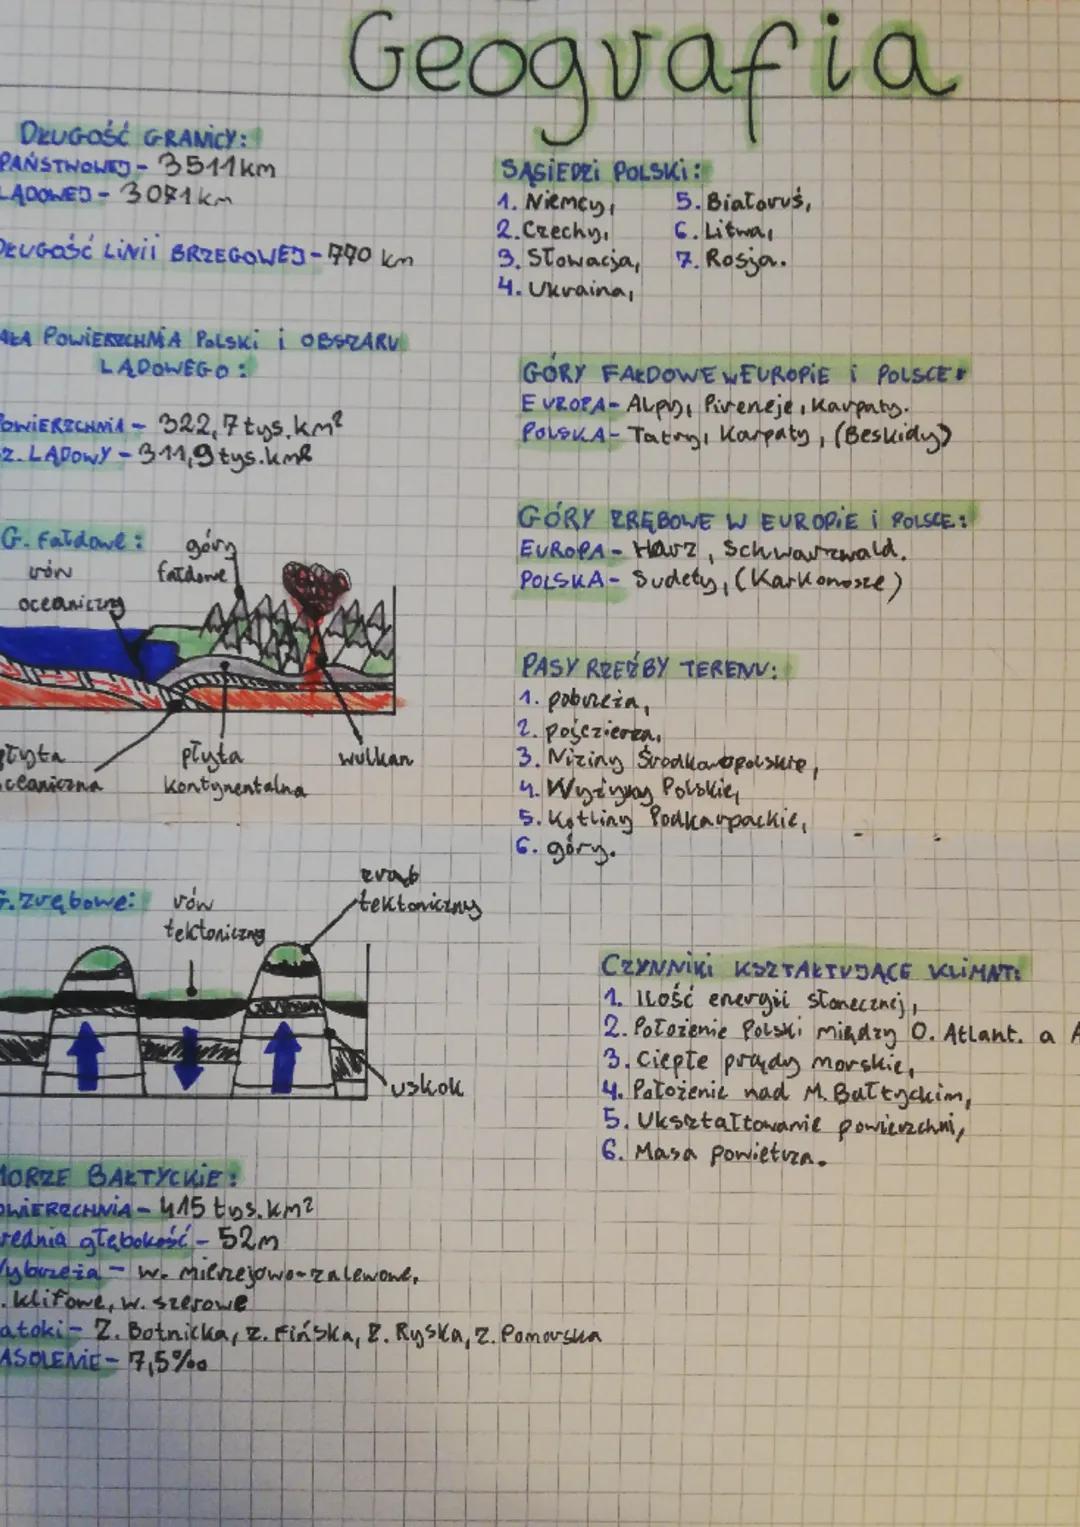 Geografia
DŁUGOŚĆ GRANICY:
PAŃSTWOWEJ - 3511km
LĄDOWEJ - 3071km
DŁUGOŚĆ LINII BRZEGOWEJ - 770 km
POWIERZCHNIA POLSKI i OBSZARU
LĄDOWEGO:
POWIERZCHNIA - 322,7 tys.km²
LĄDOWY - 311,9 tys.km²
G. fałdowe:
góry
fałdowe
rów
oceaniczny
płyta
oceaniczna
płyta
kontynentalna
wulkan
G. zrębowe:
rów
tektoniczny
zrąb
tektoniczny
uskok
MORZE BAŁTYCKIE:
POWIERZCHNIA - 415 tys.km²
średnia głębokość - 52m
Wybrzeża - w. mierzejowo-zalewowe,
klifowe, w. szerowe
Zatoki - Z. Botnicka, Z. Fińska, Z. Ryska, Z. Pomorska
ZASOLENIE - 7,5‰
SĄSIEDZI POLSKI:
1. Niemcy,
2. Czechy,
3. Słowacja,
4. Ukraina,
5. Białoruś,
6. Litwa,
7. Rosja.
GÓRY FAŁDOWE W EUROPIE i POLSCE:
EUROPA - Alpy, Pireneje, Karpaty.
POLSKA - Tatry, Karpaty, (Beskidy)
GÓRY ZRĘBOWE W EUROPIE i POLSCE:
EUROPA - Harz, Schwarzwald.
POLSKA - Sudety, (Karkonosze)
PASY RZEŹBY TERENU:
1. pobrzeża,
2. pojezierza,
3. Niziny Środkowopolskie,
4. Wyżyny Polskie,
5. Kotliny Podkarpackie,
6. góry.
CZYNNIKI KSZTAŁTUJĄCE KLIMAT:
1. Ilość energii słonecznej,
2. Położenie Polski między O. Atlant. a
3. Ciepłe prądy morskie,
4. Położenie nad M. Bałtyckim,
5. Ukształtowanie powierzchni,
6. Masa powietrza.